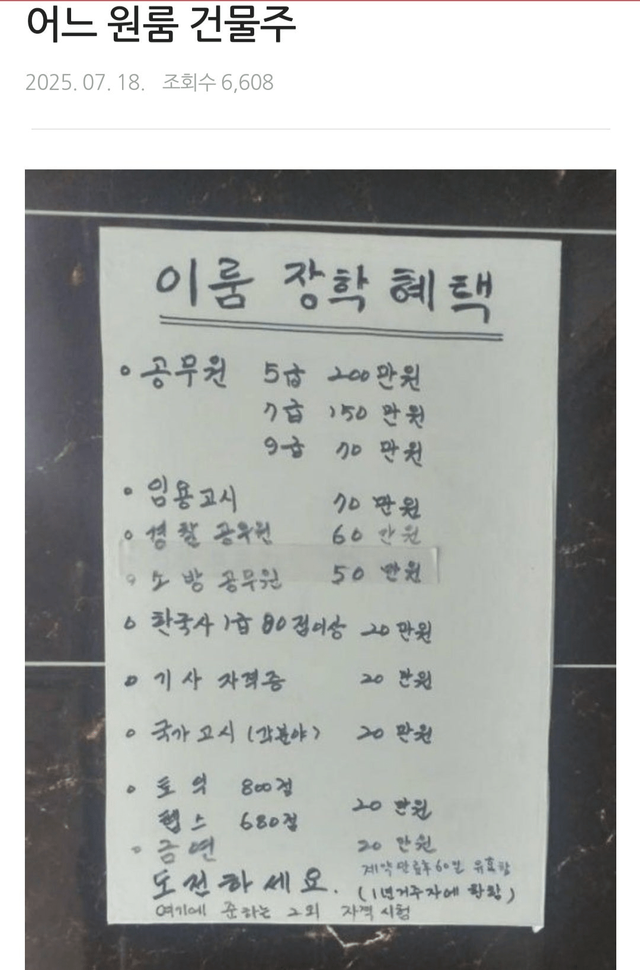 어느 원룸 건물주
2025. 07. 18. 조회수 6,608
이룸 장학 혜택
공무원 5급 200만원
7급 150만원
9급 70만원
임용고시 70만원
경찰 공무원 60만원
소방 공무원 50만원
한국사 1급 80점이상 20만원
기사 자격증 20만원
국가고시 (각분야) 20만원
토익 800점
텝스 680점 20만원
금연 20만원
계약만료후 60일 유효함
도전하세요. (1년거주자에 한함)
여기에 준하는 그외 자격시험